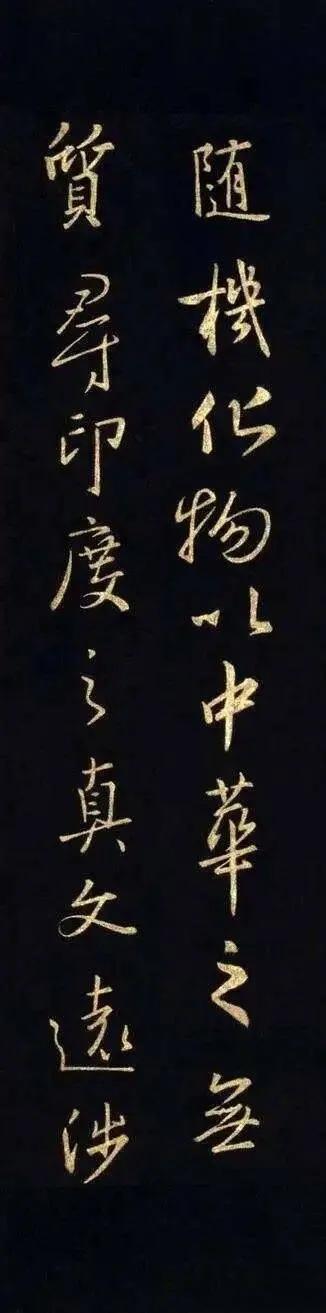 随機化物以中華之無
質尋印度之真文遠涉